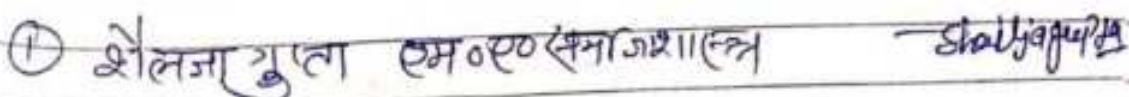 ① शैलजा गुप्ता एम०ए० समाजशास्त्र Shailja gupta